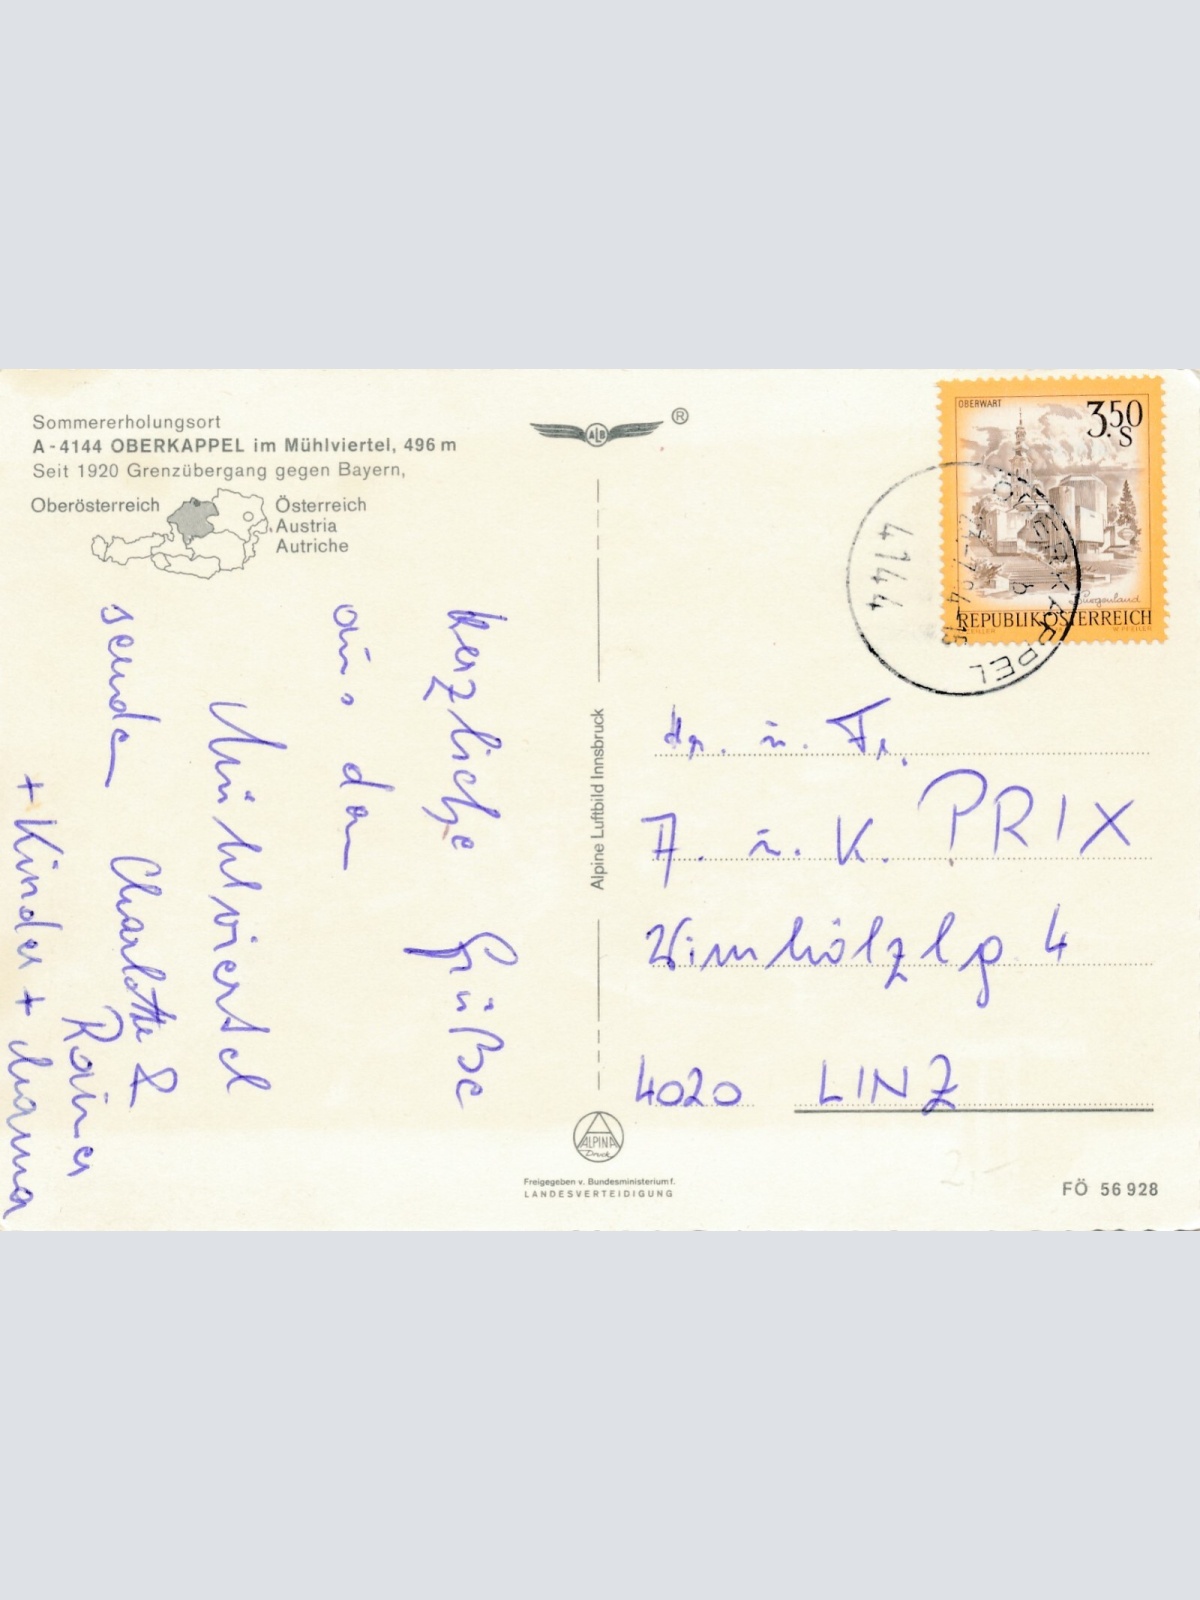 Sommererholungsort
A-4144 OBERKAPPEL im Mühlviertel, 496 m
Seit 1920 Grenzübergang gegen Bayern,
Oberösterreich
Österreich
Austria
Autriche
herzliche Grüße
aus dem
Mühlviertel
senden Charlotte &
Rainer
+ Kinder + Mama
ALB
®
Alpine Luftbild Innsbruck
ALPINA
Druck
Freigegeben v. Bundesministerium f.
LANDESVERTEIDIGUNG
OBERWART
3.50
S
Burgenland
REPUBLIK ÖSTERREICH
OBERKAPPEL
4144
Hr. u. Fr.
A. u. K. PRIX
Wimhölzlg 4
4020 LINZ
2,-
FÖ 56 928